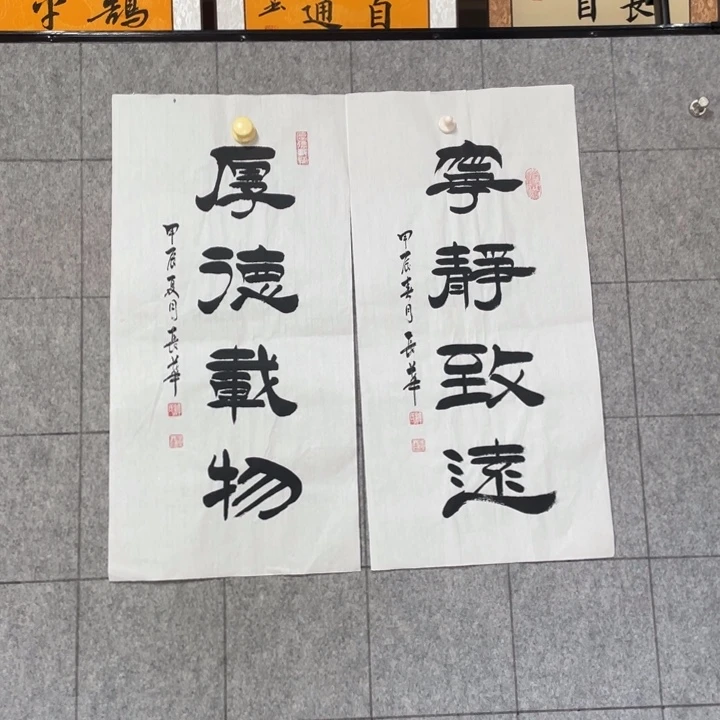 寧靜致遠
甲辰春月 長華
厚德載物
甲辰夏月 長華
自
通
鵠
長
自